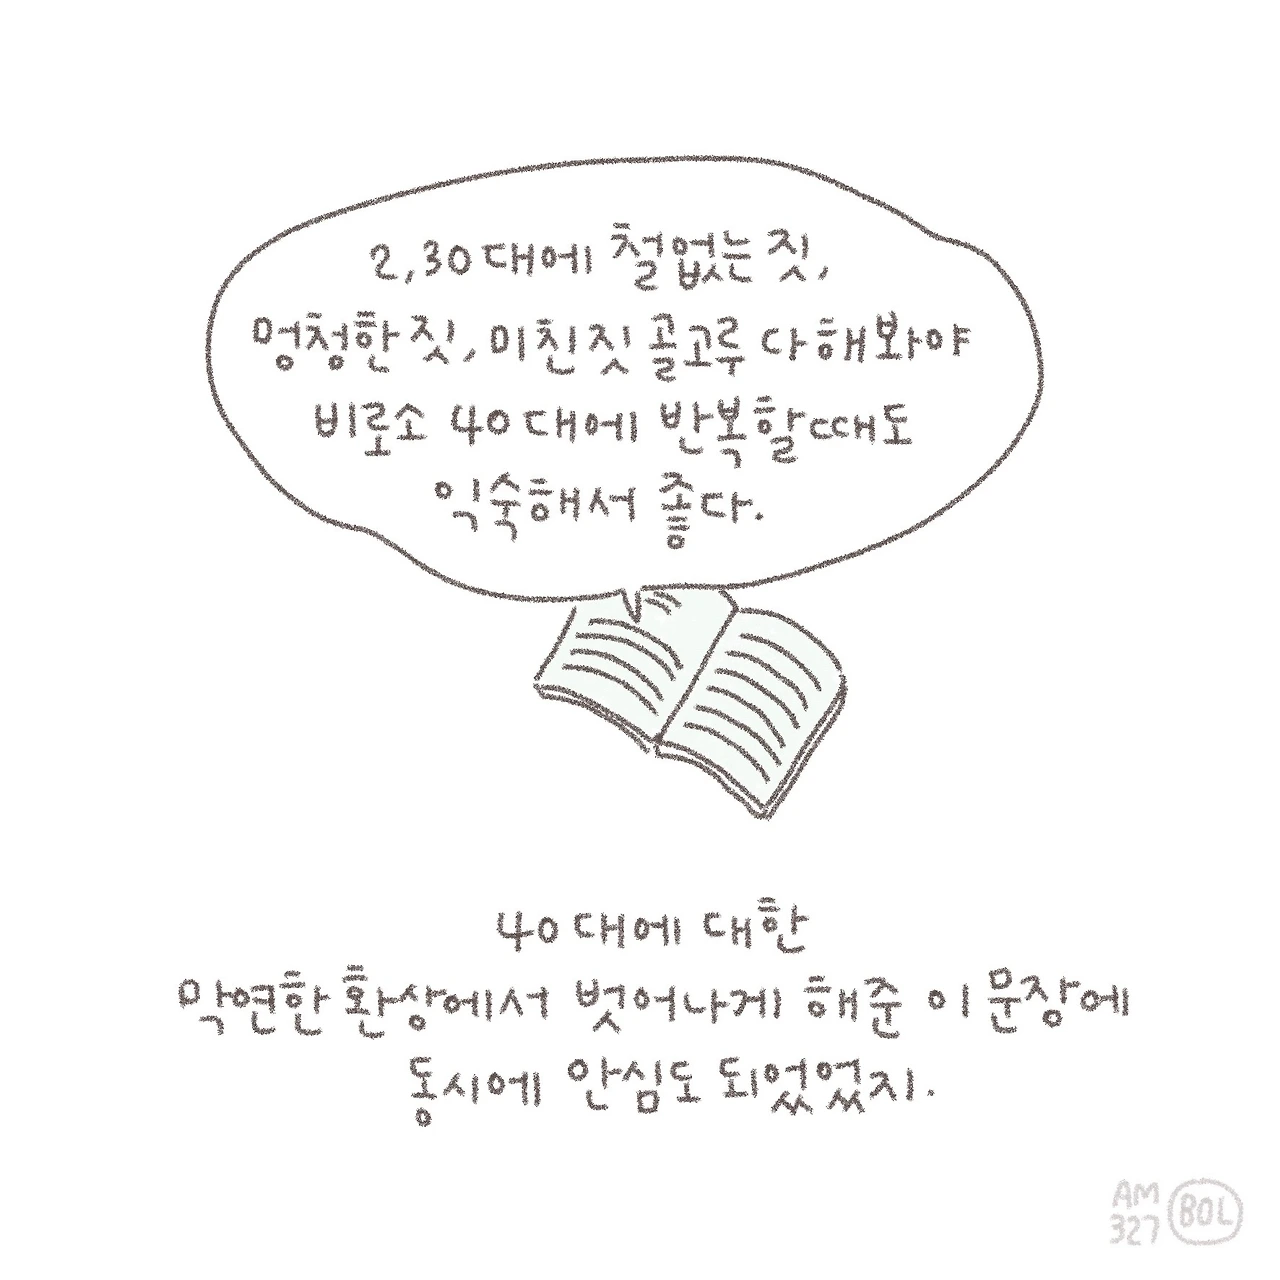 2,30대에 철없는 짓,
멍청한 짓, 미친짓 골고루 다 해봐야
비로소 40대에 반복할때도
익숙해서 좋다.
40대에 대한
막연한 환상에서 벗어나게 해준 이 문장에
동시에 안심도 되었었지.
AM
327
BOL